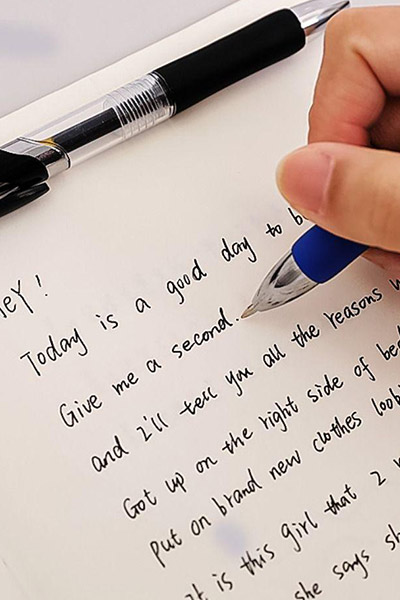 HeY!
Today is a good day to
Give me a second.
and I'll tell you all the reasons
Got up on the right side of
Put on brand new clothes
is this girl that I
she says